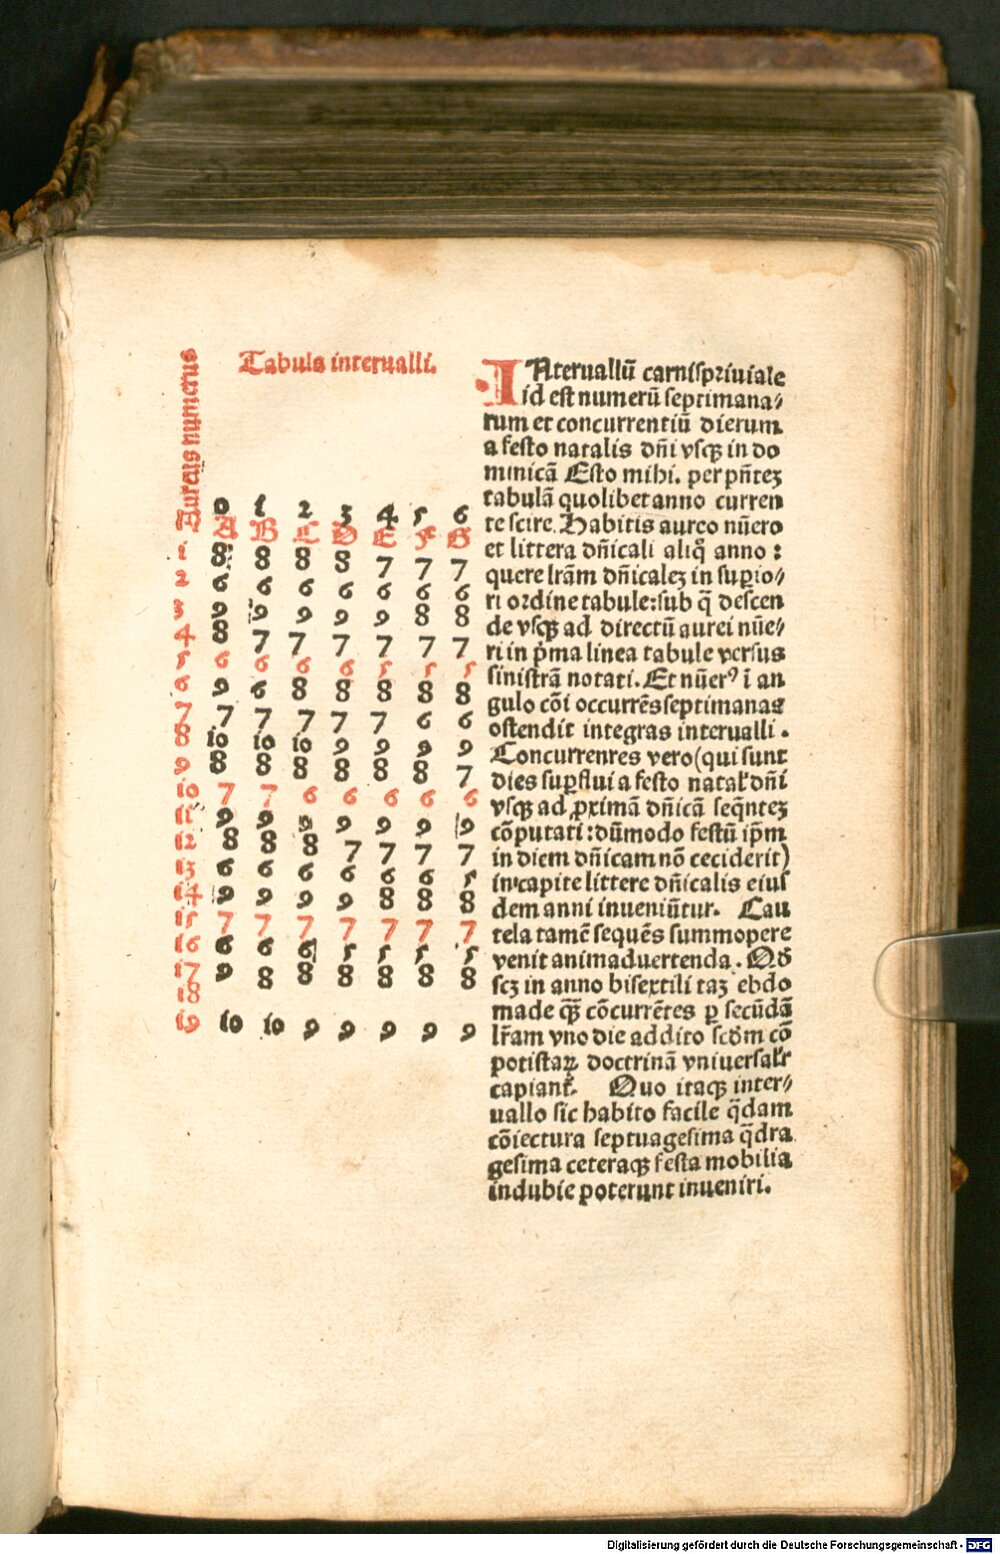 Aureus numerus
Tabula interualli.
0 1 2 3 4 5 6
A B C D E F G
1 8 8 8 8 7 7 7
2 6 6 6 6 6 6 6
3 9 9 9 9 9 8 8
4 8 7 7 7 7 7 7
5 6 6 6 6 5 5 5
6 9 6 8 8 8 8 8
7 7 7 7 7 7 6 6
8 10 10 10 9 9 9 9
9 8 8 8 8 8 8 7
10 7 7 6 6 6 6 6
11 9 9 9 9 9 9 9
12 8 8 8 7 7 7 7
13 6 6 6 6 6 6 5
14 9 9 9 9 8 8 8
15 7 7 7 7 7 7 7
16 6 6 6 5 5 5 5
17 9 8 8 8 8 8 8
18
19 10 10 9 9 9 9 9
INteruallū carnispriuiale
id est numerū septimana⸗
rum et concurrentiū dierum
a festo natalis dñi vsqꝫ in do
minicā Esto mihi. per pñteꝫ
tabulā quolibet anno curren
te scire. Habitis aureo nūero
et littera dñicali aliq̄ anno :
quere lr̄am dñicaleꝫ in sup̱io⸗
ri ordine tabule: sub q̄ descen
de vsqꝫ ad directū aurei nūe⸗
ri in p̄ma linea tabule versus
sinistrā notati. Et nūerꝰ ī an
gulo cōi occurrēs septimanas
ostendit integras interualli .
Concurrenres vero (qui sunt
dies sup̱flui a festo natal̕ dñi
vsqꝫ ad ꝓximā dñicā seq̄nteꝫ
cōputati : dūmodo festū ip̄m
in diem dñicam nō ceciderit)
in capite littere dñicalis eius
dem anni inueniūtur. Cau
tela tamē sequēs summopere
venit animaduertenda . Qđ
scꝫ in anno bisextili taꝫ ebdo
made qꝫ̄ cōcurrētes ꝑ secūdā
lr̄am vno die addito scđm cō
potistaꝝ doctrinā vniuersal̕r
capiant̕. Quo itaqꝫ inter⸗
uallo sic habito facile q̄dam
cōiectura septuagesima q̄dra
gesima ceteraqꝫ festa mobilia
indubie poterunt inueniri.
Digitalisierung gefördert durch die Deutsche Forschungsgemeinschaft - DFG